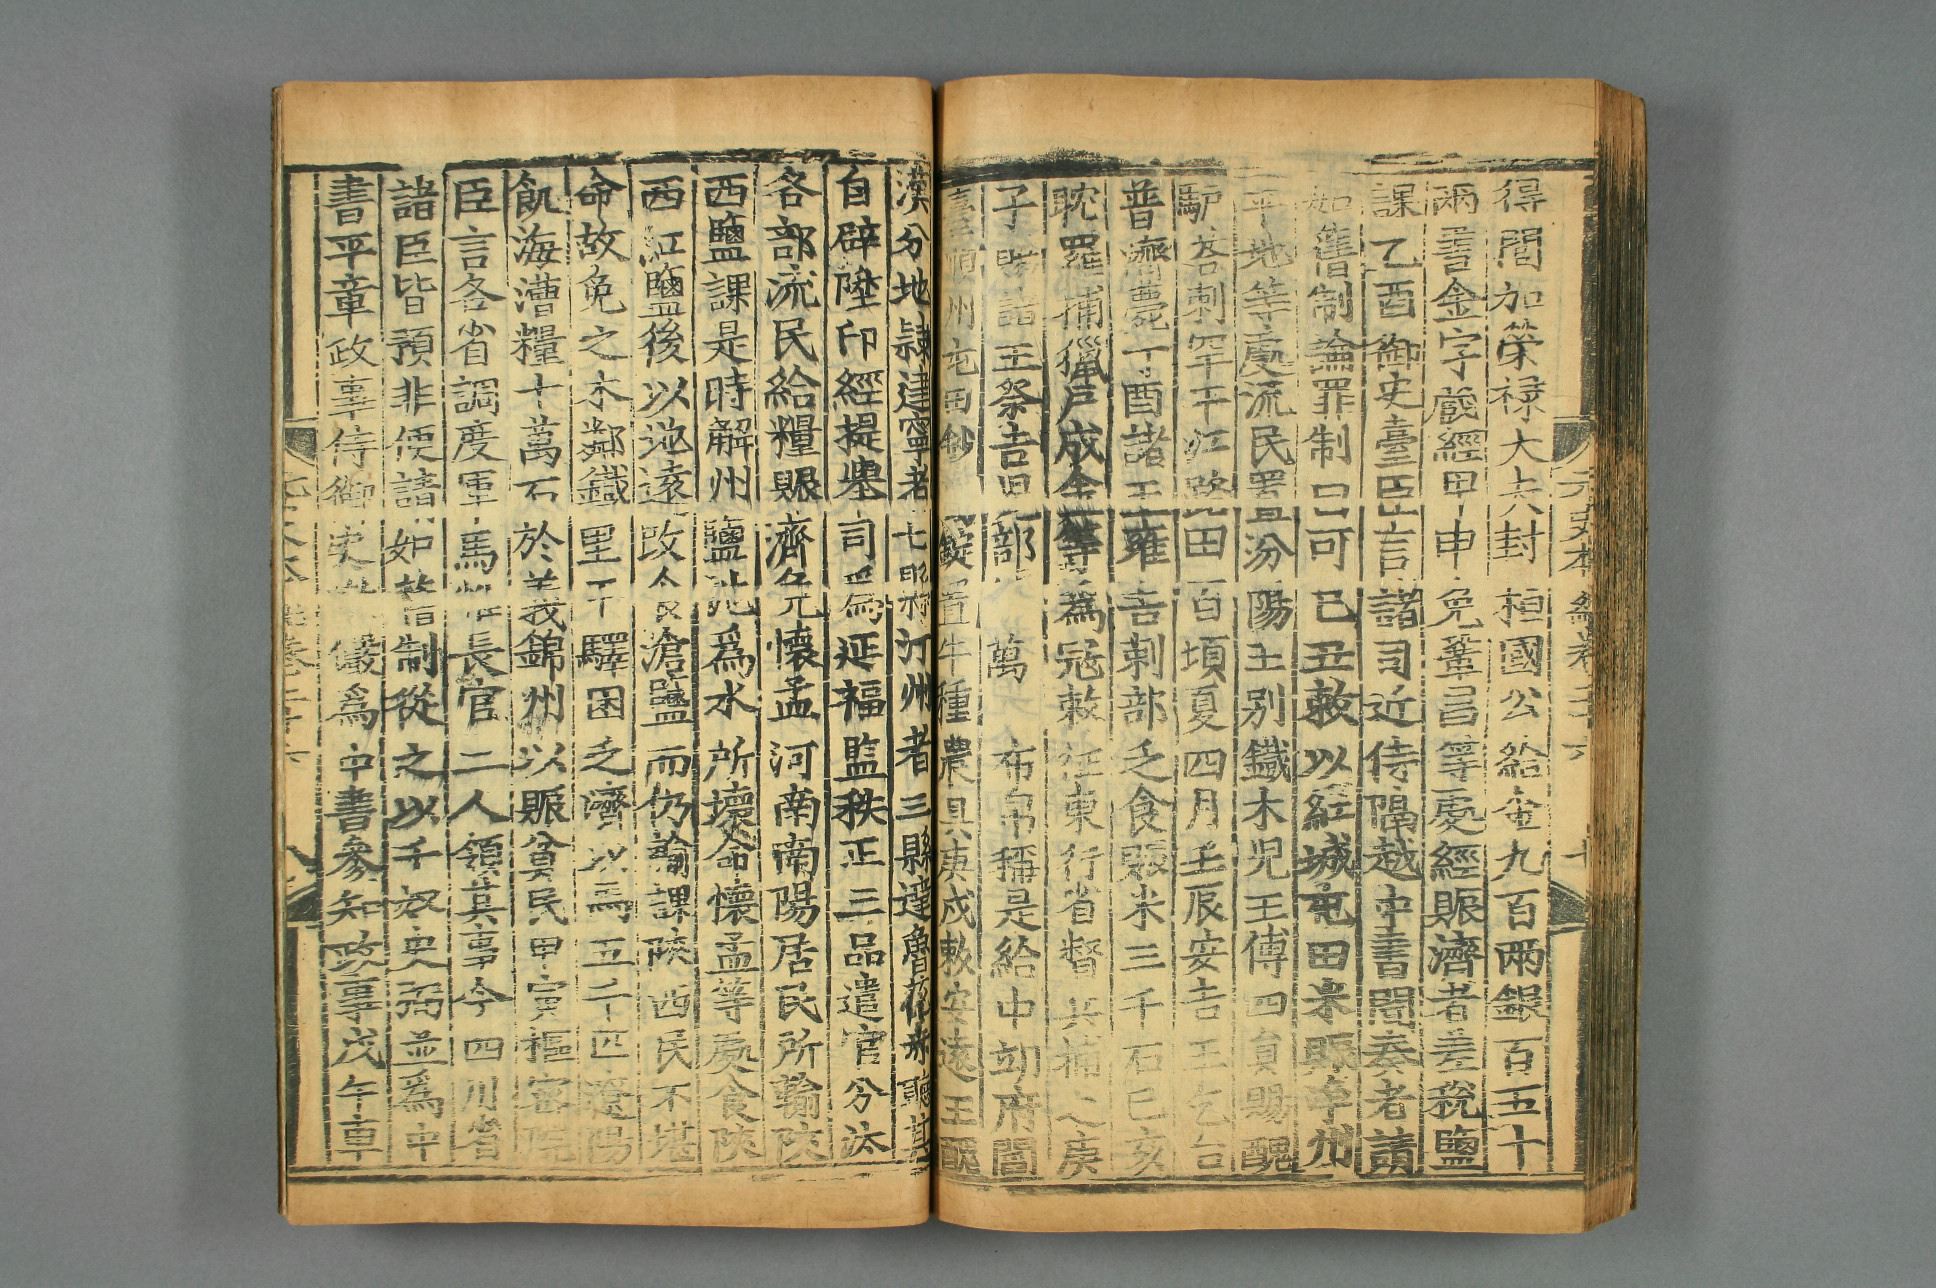 元史本紀卷二十六
得閏加榮祿大夫封桓國公給金九百兩銀百五十
兩書金字藏經甲申免鞏昌等處經賑濟者差稅鹽
課乙酉御史臺臣言諸司近侍隔越中書聞奏者請
如舊制論罪制曰可己丑敕以紅城屯田米賑淨州
平地等處流民置汾陽王別鐵木兒王傅四員賜醜
驢荅剌罕平江路田百頃夏四月壬辰安吉王乞台
普濟薨丁酉諸王雍吉剌部乏食賑米三千石己亥
耽羅捕獵戶成金等為寇敕征東行省督兵捕之庚
子賜諸王察吉兒部鈔萬 布帛稱是給中翊府閻
臺順州屯田鈔 錠置牛種農具庚戌敕安遠王醜
漢分地隸建寧者七縣汀州者三縣達魯花赤聽其
自辟陞印經提舉司爲延福監秩正三品遣官分汰
各部流民給糧賑濟免懷孟河南南陽居民所輸陝
西鹽課是時解州鹽池爲水所壞命懷孟等處食陝
西紅鹽後以池遠改食滄鹽而仍輸課陝西民不堪
命故免之木鄰鐵里干驛困乏濟以馬五千匹遼陽
飢海漕糧十萬石於義錦州以賑貧民甲寅樞密院
臣言各省調度軍馬惟長官二人領其事今四川省
諸臣皆預非便請如舊制從之以千奴史弼並爲中
書平章政事侍御史 儼爲中書參知政事戊午車